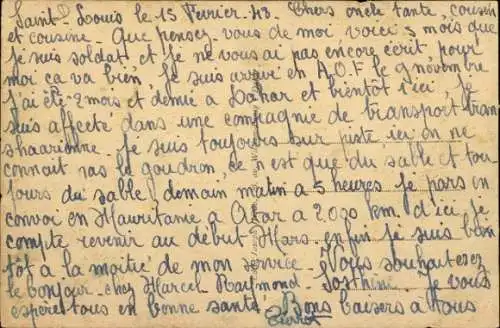 Saint-Louis le 15 Fevrier 43. Chers oncle tante, cousin
et cousine. Que pensez-vous de moi voici 3 mois que
je suis soldat et je ne vous ai pas encore écrit pour
moi ça va bien, je suis arrivé en A.O.F le 9 novembre
j'ai été 2 mois et demie à Dakar et bientôt 1 ici, je
suis affecté dans une compagnie de transport tran
shaarienne. Je suis toujours sur piste ici on ne
connait pas le goudron, ce n'est que du sable et tou
jours du sable, demain matin à 5 heures je pars en
convoi en Mauritanie à Atar à 2.000 km. d'ici je
compte revenir au début Mars. enfin je suis bien
tôt à la moitié de mon service. Vous souhaiterez
le bonjour chez Marcel Raymond Josthine je vous
espère tous en bonne santé. Bons baisers à tous
Pierrot